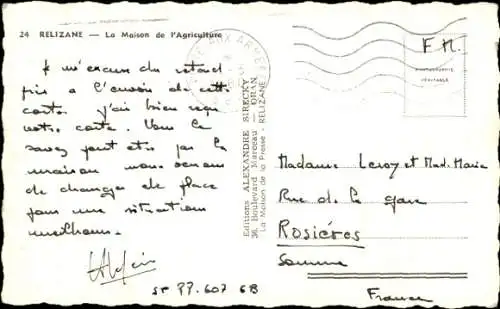 24 RELIZANE — La Maison de l'Agriculture
POSTE AUX ARMÉES
F. M.
PHOTOGRAPHIE
VÉRITABLE
Je m'excuse du retard
pris a l'envoi de cette
carte. j'ai bien reçu
votre carte. Vous le
savez peut etre par la
maison nous venons
de changer de place
pour une situation
meilleure.
SP 77.607 6B
Editions ALEXANDRE SIRECKY
36, Boulevard Marceau — ORAN
La Maison de la Presse - RELIZANE
Madame Leroy et Mad. Marie
Rue de la gare
Rosiéres
Somme
France